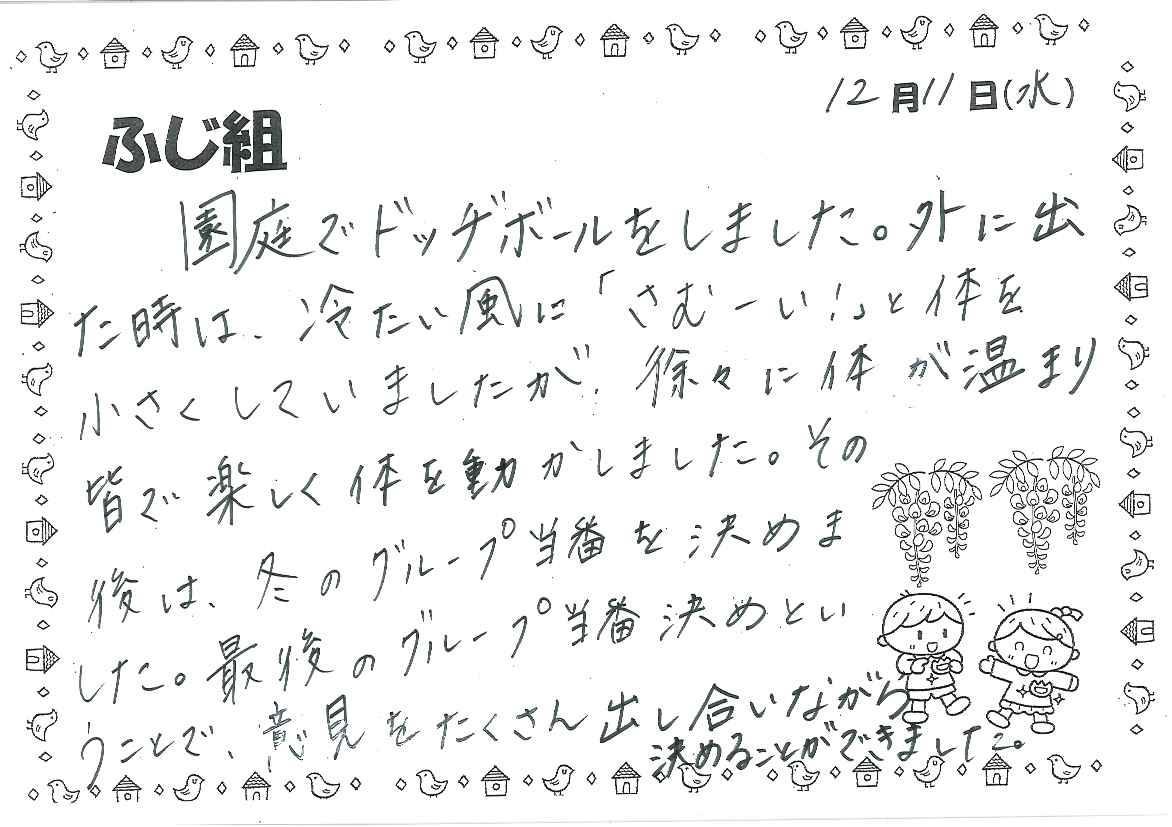 12月11日(水)
ふじ組
園庭でドッヂボールをしました。外に出
た時は、冷たい風に「さむーい!」と体を
小さくしていましたが、徐々に体が温まり
皆で楽しく体を動かしました。その
後は、冬のグループ当番を決めま
した。最後のグループ当番決めとい
うことで、意見をたくさん出し合いながら
決めることができました。